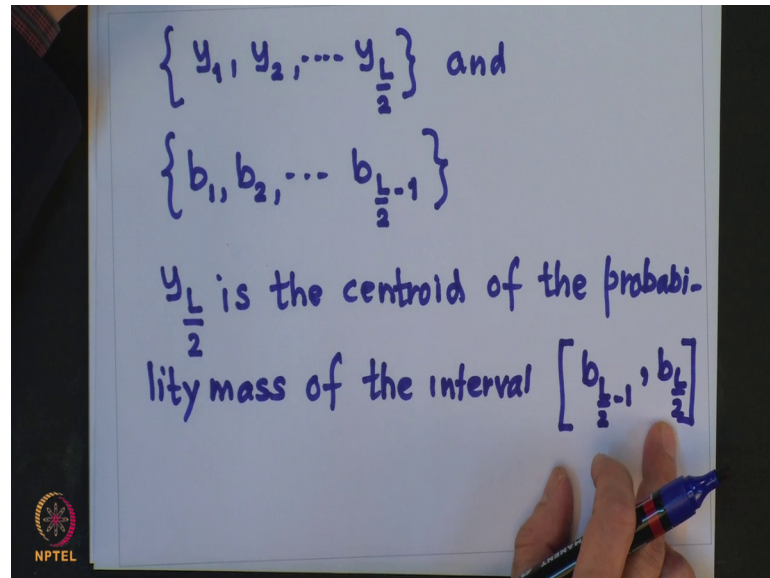 { y₁, y₂, ---- y_{L/2} } and
{ b₁, b₂, --- b_{L/2 -1} }
y_{L/2} is the centroid of the probabi-
lity mass of the interval [ b_{L/2 -1}, b_{L/2} ]
NPTEL